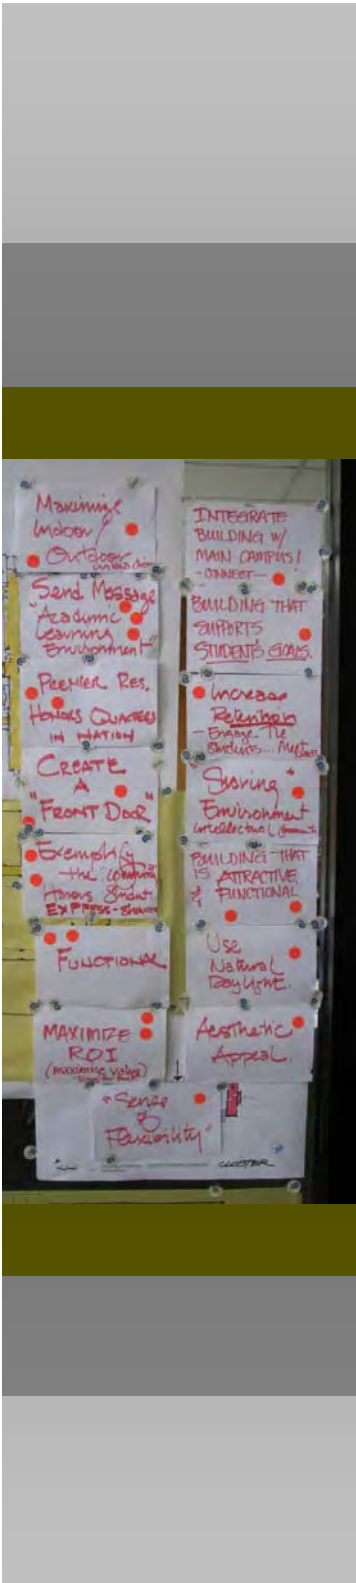 Maximize
Indoor/
Outdoor
Send Message
"Academic
Learning
Environment"
PREMIER RES.
HONORS QUARTERS
IN NATION
CREATE
A
"FRONT DOOR"
Exemplify
the
Honors
EXPRESS-
FUNCTIONAL
MAXIMIZE
ROI
(maximize value)
INTEGRATE
BUILDING W/
MAIN CAMPUS/
-CONNECT-
BUILDING THAT
SUPPORTS
STUDENT'S GOALS.
Increase
Retention
- Engage The
Students...
"Sharing"
Environment
intellectual
BUILDING THAT
IS ATTRACTIVE
& FUNCTIONAL
Use
Natural
Daylight.
Aesthetic
Appeal.
"Sense
of
Flexibility"
CLUSTER